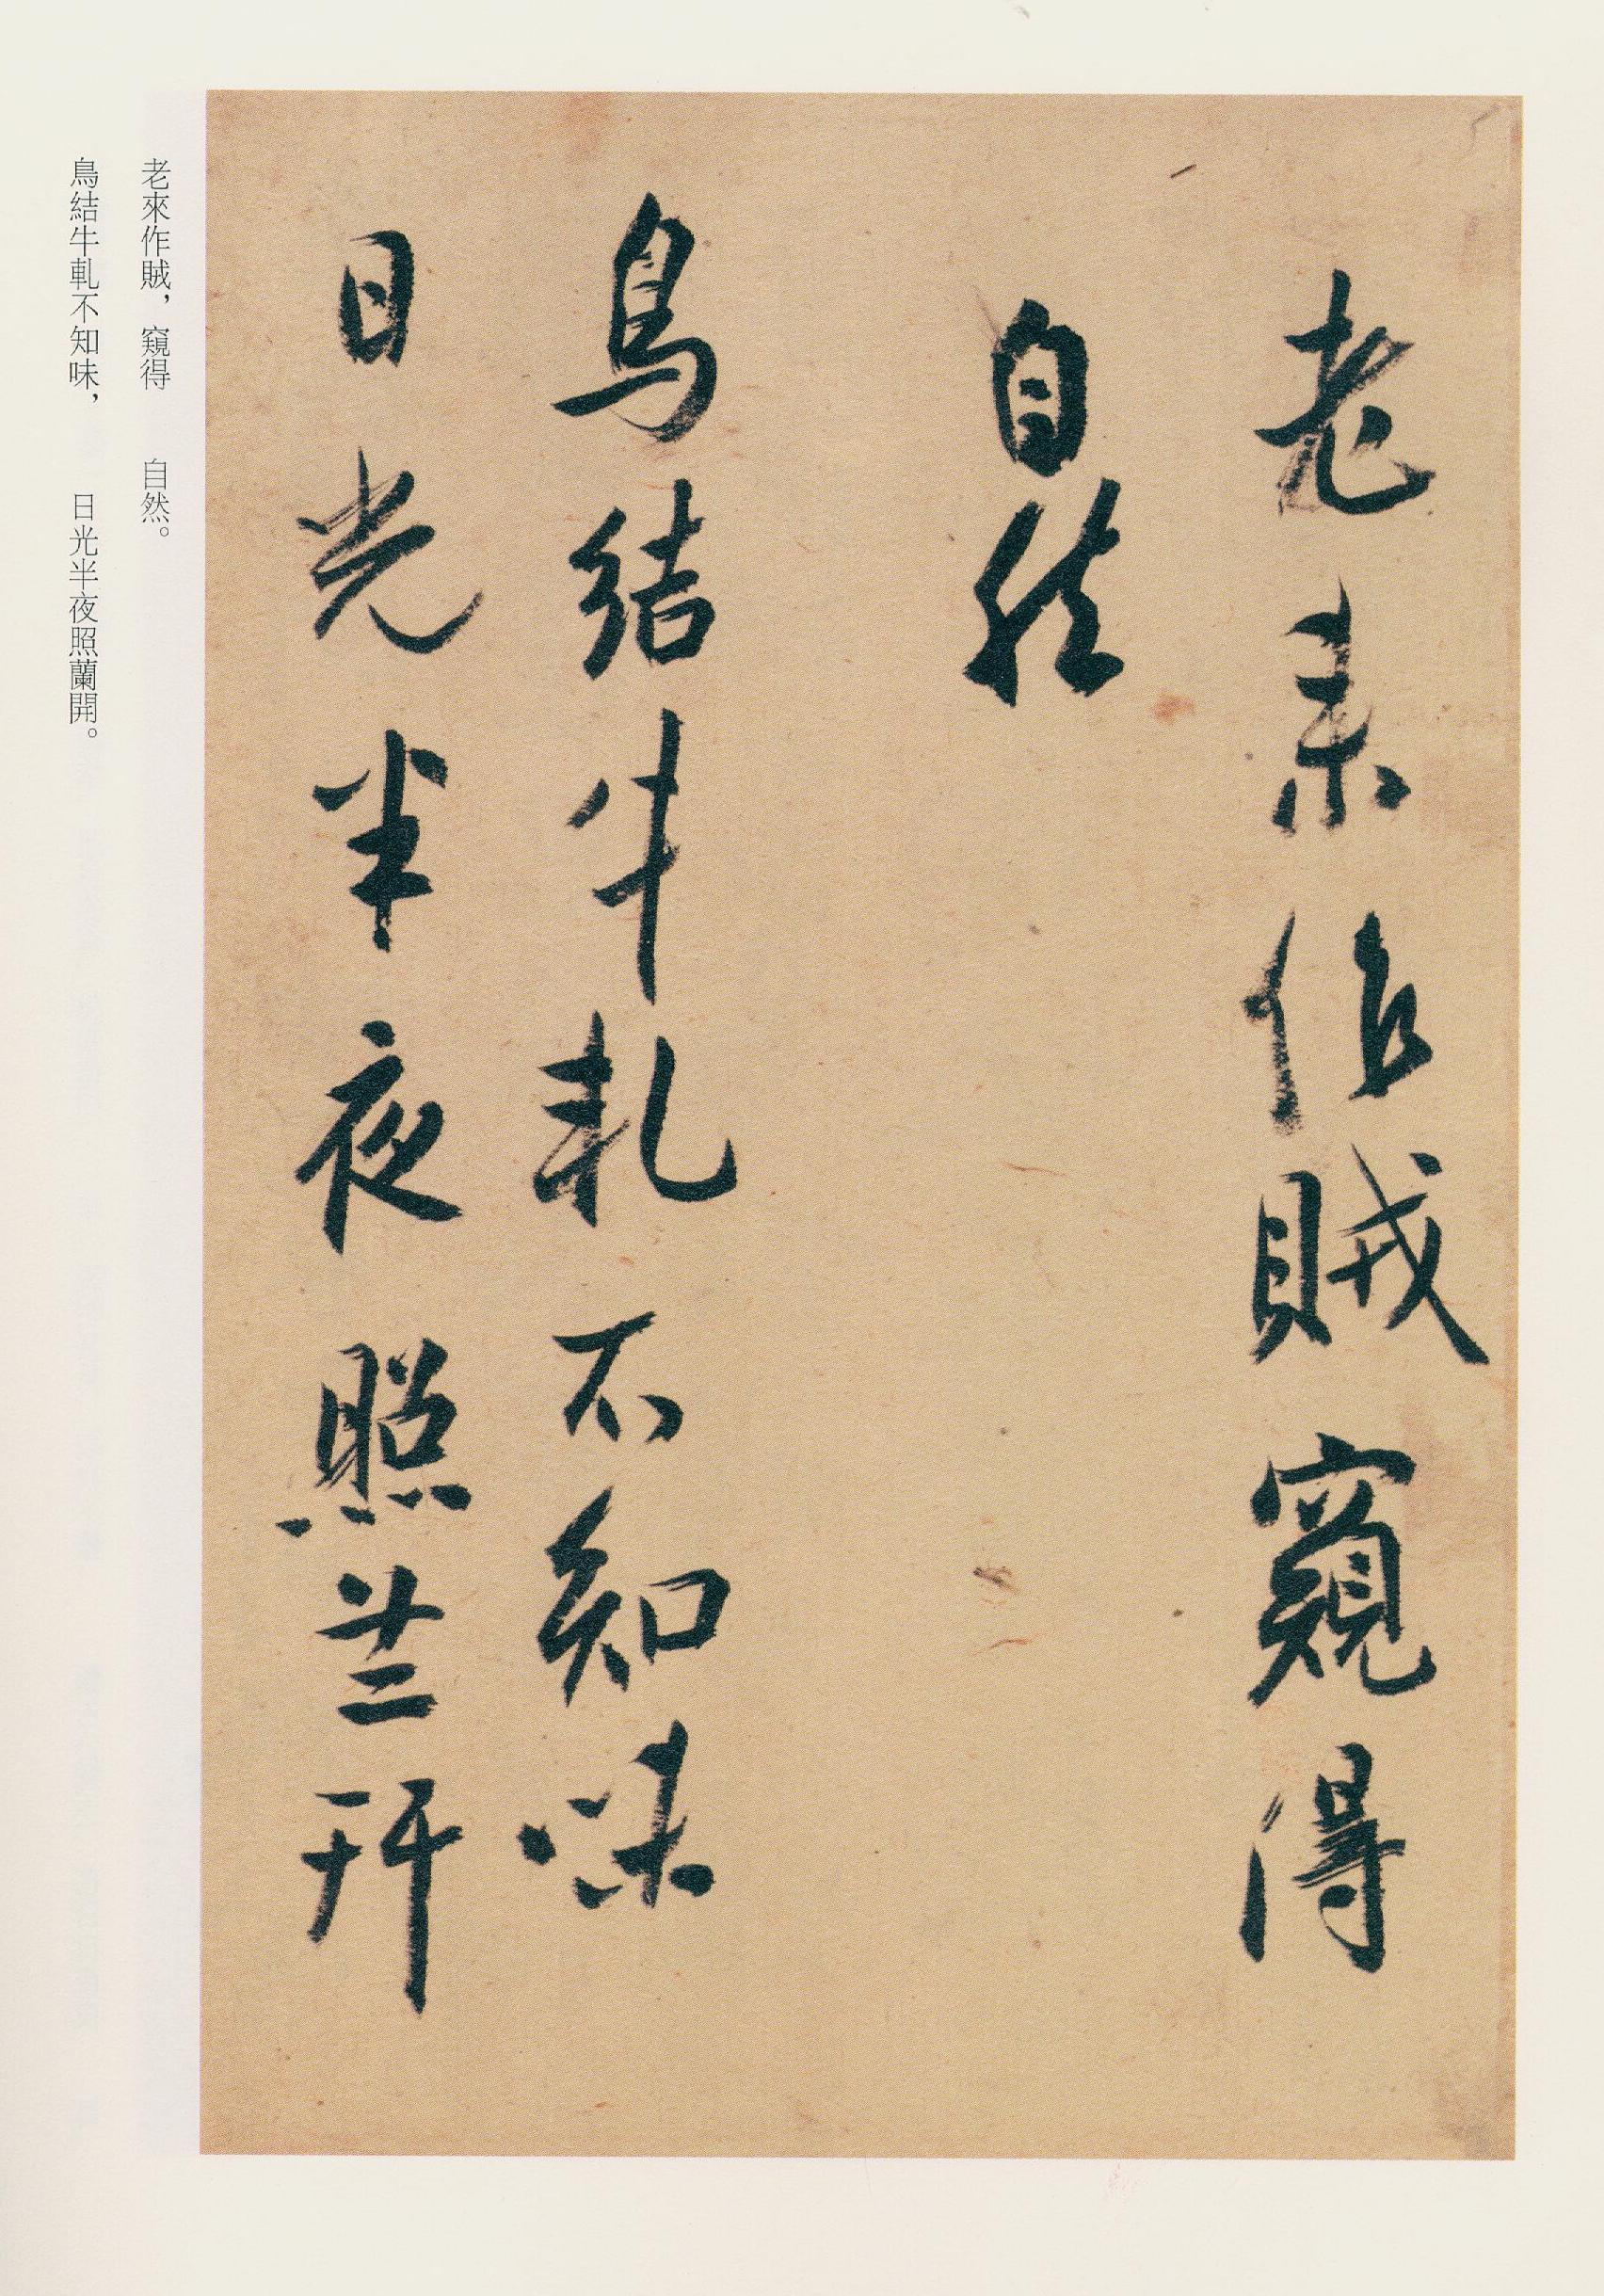 老來作賊窺得
自然
鳥結牛軋不知味
日光半夜照蘭開
老來作賊，窺得　自然。
鳥結牛軋不知味，　日光半夜照蘭開。